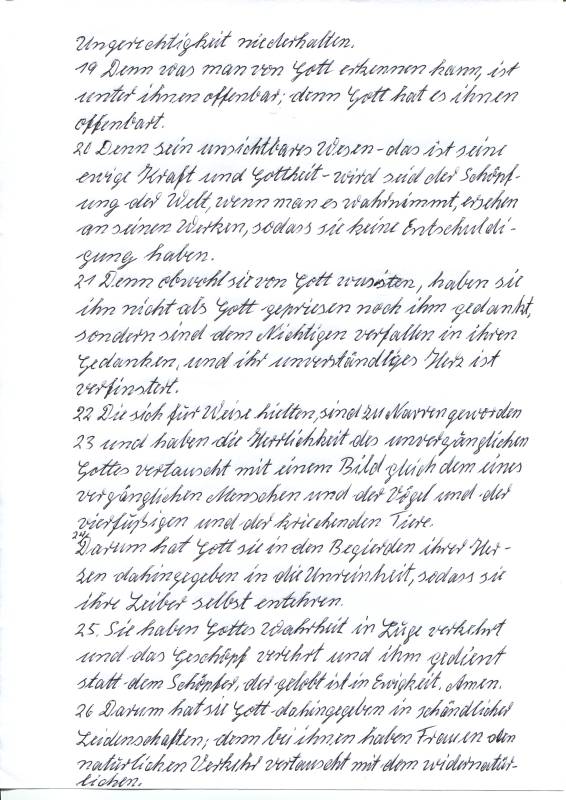 Ungerechtigkeit niederhalten.
19 Denn was man von Gott erkennen kann, ist
unter ihnen offenbar; denn Gott hat es ihnen
offenbart.
20 Denn sein unsichtbares Wesen – das ist seine
ewige Kraft und Gottheit – wird seid der Schöpf-
ung der Welt, wenn man es wahrnimmt, ersehen
an seinen Werken, sodass sie keine Entschuldi-
gung haben.
21 Denn obwohl sie von Gott wussten, haben sie
ihn nicht als Gott gepriesen noch ihm gedankt,
sondern sind dem Nichtigen verfallen in ihren
Gedanken, und ihr unverständliges Herz ist
verfinstert.
22 Die sich für Weise hielten, sind zu Narren geworden
23 und haben die Herrlichkeit des unvergänglichen
Gottes vertauscht mit einem Bild gleich dem eines
vergänglichen Menschen und der Vögel und der
vierfüßigen und der kriechenden Tiere.
24
Darum hat Gott sie in den Begierden ihrer Her-
zen dahingegeben in die Unreinheit, sodass sie
ihre Leiber selbst entehren.
25. Sie haben Gottes Wahrheit in Lüge verkehrt
und das Geschöpf verehrt und ihm gedient
statt dem Schöpfer, der gelobt ist in Ewigkeit. Amen.
26 Darum hat sie Gott dahingegeben in schändliche
Leidenschaften; denn bei ihnen haben Frauen den
natürlichen Verkehr vertauscht mit dem widernatür-
lichen.